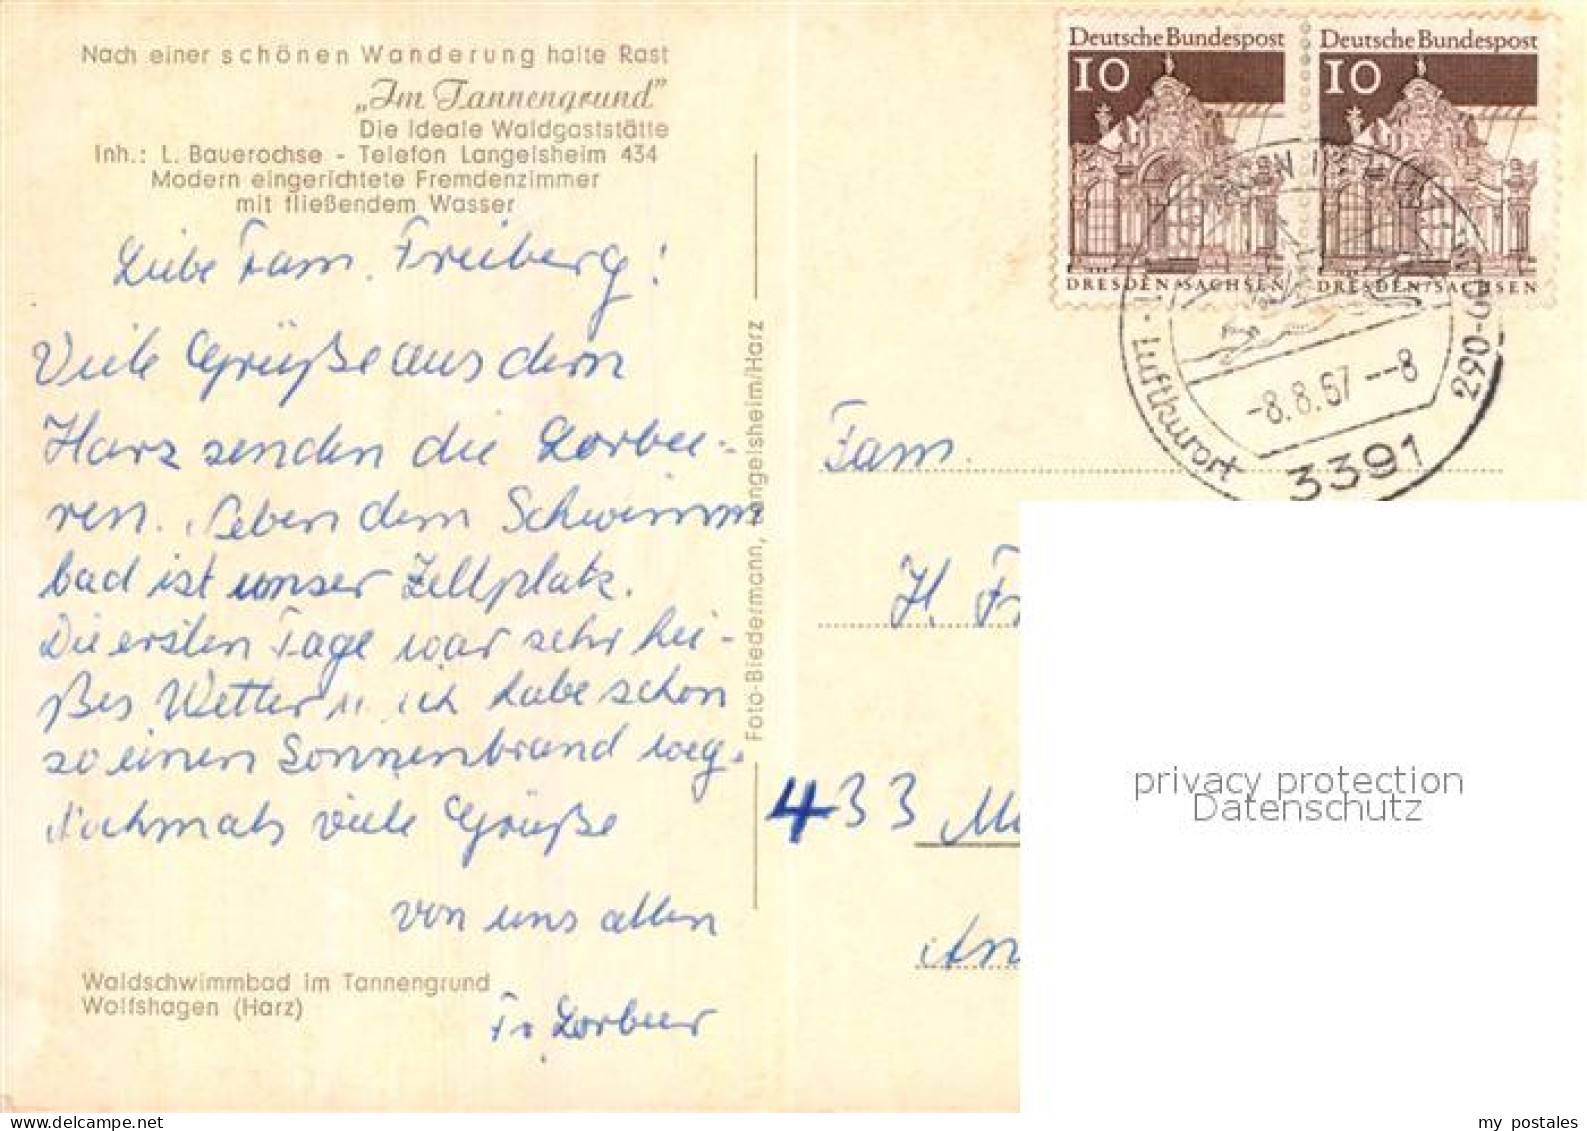 Nach einer schönen Wanderung halte Rast
„Im Tannengrund"
Die ideale Waldgaststätte
Inh.: L. Bauerochse - Telefon Langelsheim 434
Modern eingerichtete Fremdenzimmer
mit fließendem Wasser
Liebe Fam. Freiberg!
Viele Grüße aus dem
Harz senden die Lorbee-
ren. Neben dem Schwimm
bad ist unser Zeltplatz.
Die ersten Tage war sehr hei-
ßes Wetter u. ich habe schon
so einen Sonnenbrand weg.
Nochmals viele Grüße
von uns allen
Fr. Lorbeer
Waldschwimmbad im Tannengrund
Wolfshagen (Harz)
Foto-Biedermann, Langelsheim/Harz
Deutsche Bundespost
10
DRESDEN/SACHSEN
Deutsche Bundespost
10
DRESDEN/SACHSEN
Luftkurort
-8.8.67--8
3391
290-600
Fam.
H. Fr
433 Mü
An
privacy protection
Datenschutz
my postales